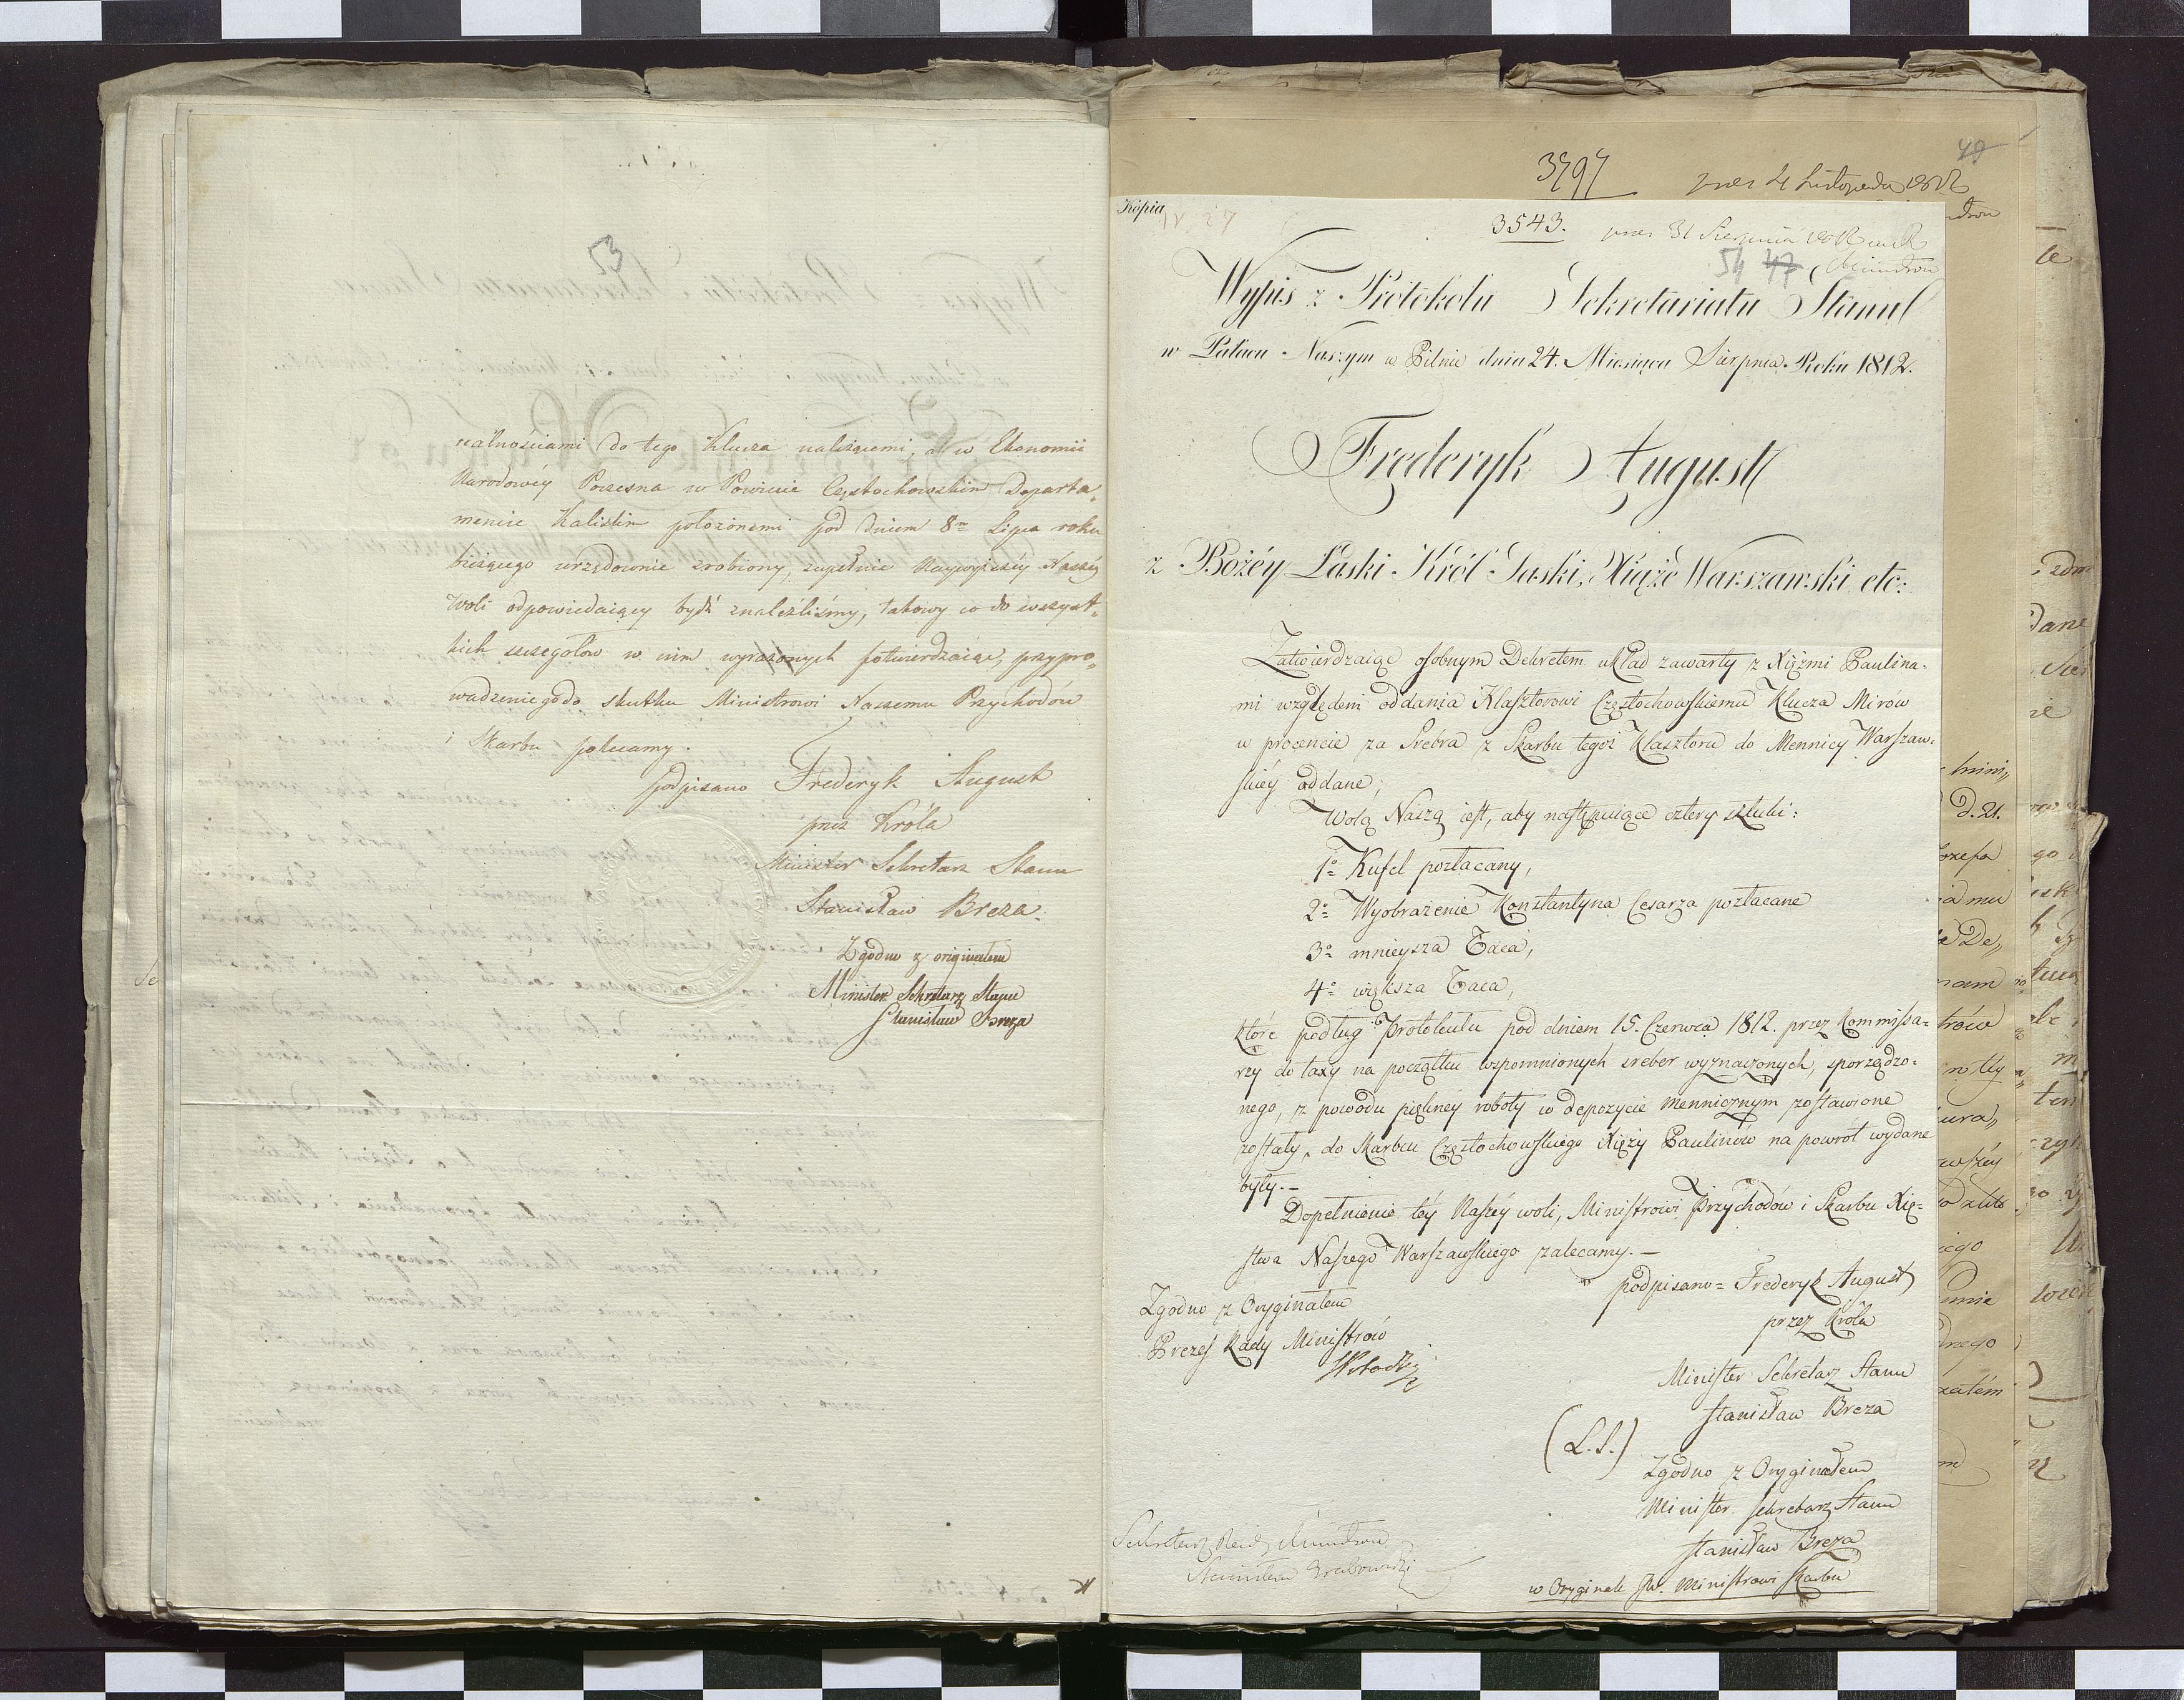 53
realnościami do tego Klucza należącemi, a w Ekonomii
Narodowéy Poczesna w Powiecie Częstochowskim Departa„
mencie Kaliskim położonemi pod dniem 8m Lipca roku
bieżącego urzędownie zrobiony, zupełnie Naywyższéy Naszéy
Woli odpowiedaiący bydź znaleźliśmy, takowy co do wszyst„
kich szczegołów w nim wyrażonych potwierdzaiąc, przypro„
wadzenie go do skutku Ministrowi Naszemu Przychodów
i Skarbu polecamy.
podpisano Frederyk August
przez Króla
Minister Sekretarz Stanu
Stanisław Breza.
Zgodno z originałem
Minister Sekretarz Stanu
Stanisław Breza
49
3797
4 Listopada
Kopia
3543.
31 Sierpnia
54 47 Ministrów
Wypis z Protokółu Sekretariatu Stanu
w Pałacu Naszym w Pilnic dnia 24. Miesiąca Sierpnia Roku 1812.
Fryderyk August
z Bożéy Łaski Król Saski, Xiąże Warszawski etc:
Zatwierdzaiąc osobnym Dekretem układ zawarty z Xiężmi Paulina-
mi względem oddania Klasztorowi Częstochowskiemu Klucza Mirów
w procencie za Srebra z Skarbu tegoż Klasztoru do Mennicy Warszaw-
skiéy oddane;
Wolą Naszą iest, aby następuiące cztery sztuki:
1o Kufel pozłacany,
2o Wyobrażenie Konstantyna Cesarza pozłacane
3o mnieysza Taca,
4o większa Taca,
które podług Protokułu pod dniem 15. Czerwca 1812. przez Kommissa-
rzy do taxy na początku wspomnionych sreber wyznaczonych, sporządzo-
nego, z powodu piękney roboty w depozycie mennicznym zostawione
zostały, do Skarbcu Częstochowskiego Xięży Paulinów na powrót wydane
były.-
Dopełnienie téy Naszéy woli, Ministrowi Przychodów i Skarbu Xię-
stwa Naszego Warszawskiego zalecamy.-
podpisano= Frederyk August
przez Króla
Zgodno z Oryginałem
Prezes Rady Ministrów
Minister Sekretarz Stanu
Stanisław Breza
(L.S.)
Zgodno z Oryginałem
Minister Sekretarz Stanu
Stanisław Breza
Sekretarz Rady Ministrów
Stanisław Grabowski
w Oryginale JW. Ministrowi Skarbu